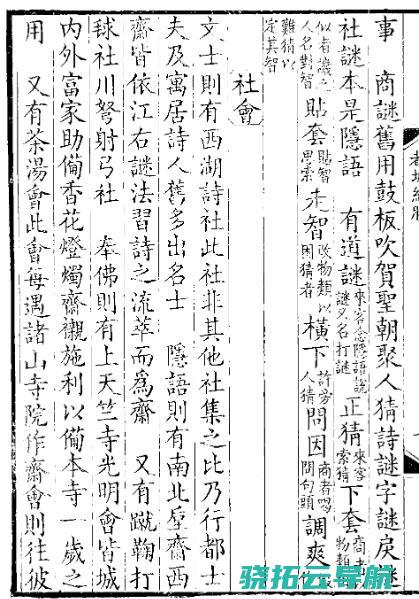 事　商謎舊用鼓板吹賀聖朝聚人猜詩謎字謎戾謎
社謎本是隱語　有道謎來客念隱語說謎又名打謎正猜來客索猜下套商者物類
似者譏之人名對智貼套貼智思索走智改物類以困猜者橫下許旁人猜問因商者喝問句頭調爽
難猜以定其智
社會
文士則有西湖詩社此社非其他社集之比乃行都士
夫及寓居詩人舊多出名士　隱語則有南北垕齋西
齋皆依江右謎法習詩之流萃而爲齋　又有蹴鞠打
毬社川弩射弓社　奉佛則有上天竺寺光明會皆城
內外富家助備香花燈燭齋襯施利以備本寺一歲之
用　又有茶湯會此會每遇諸山寺院作齋會則往彼
骁拓云导航